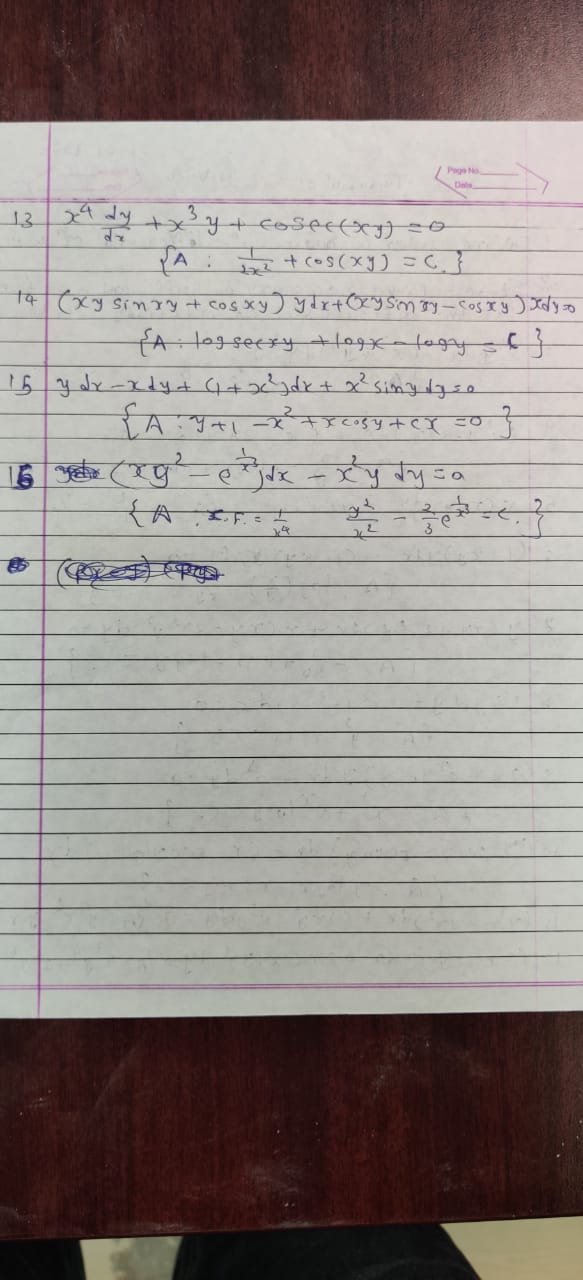 Page No.
Date
13 x⁴ dy/dx + x³y + cosec(xy) = 0
{A : 1/2x² + cos(xy) = C.}
14 (xy sin xy + cos xy) ydx + (xy sin xy - cos xy) xdy=0
{A : log sec xy + log x - log y = C}
15 y dx - x dy + (1 + x²)dx + x² sin y dy = 0
{A : y + 1 - x² + x cos y + cx = 0}
16 (xy² - e^(1/x³))dx - x²y dy = 0
{A : I.F. = 1/x⁴ y²/x² - 2/3 e^(1/x³) = C.}